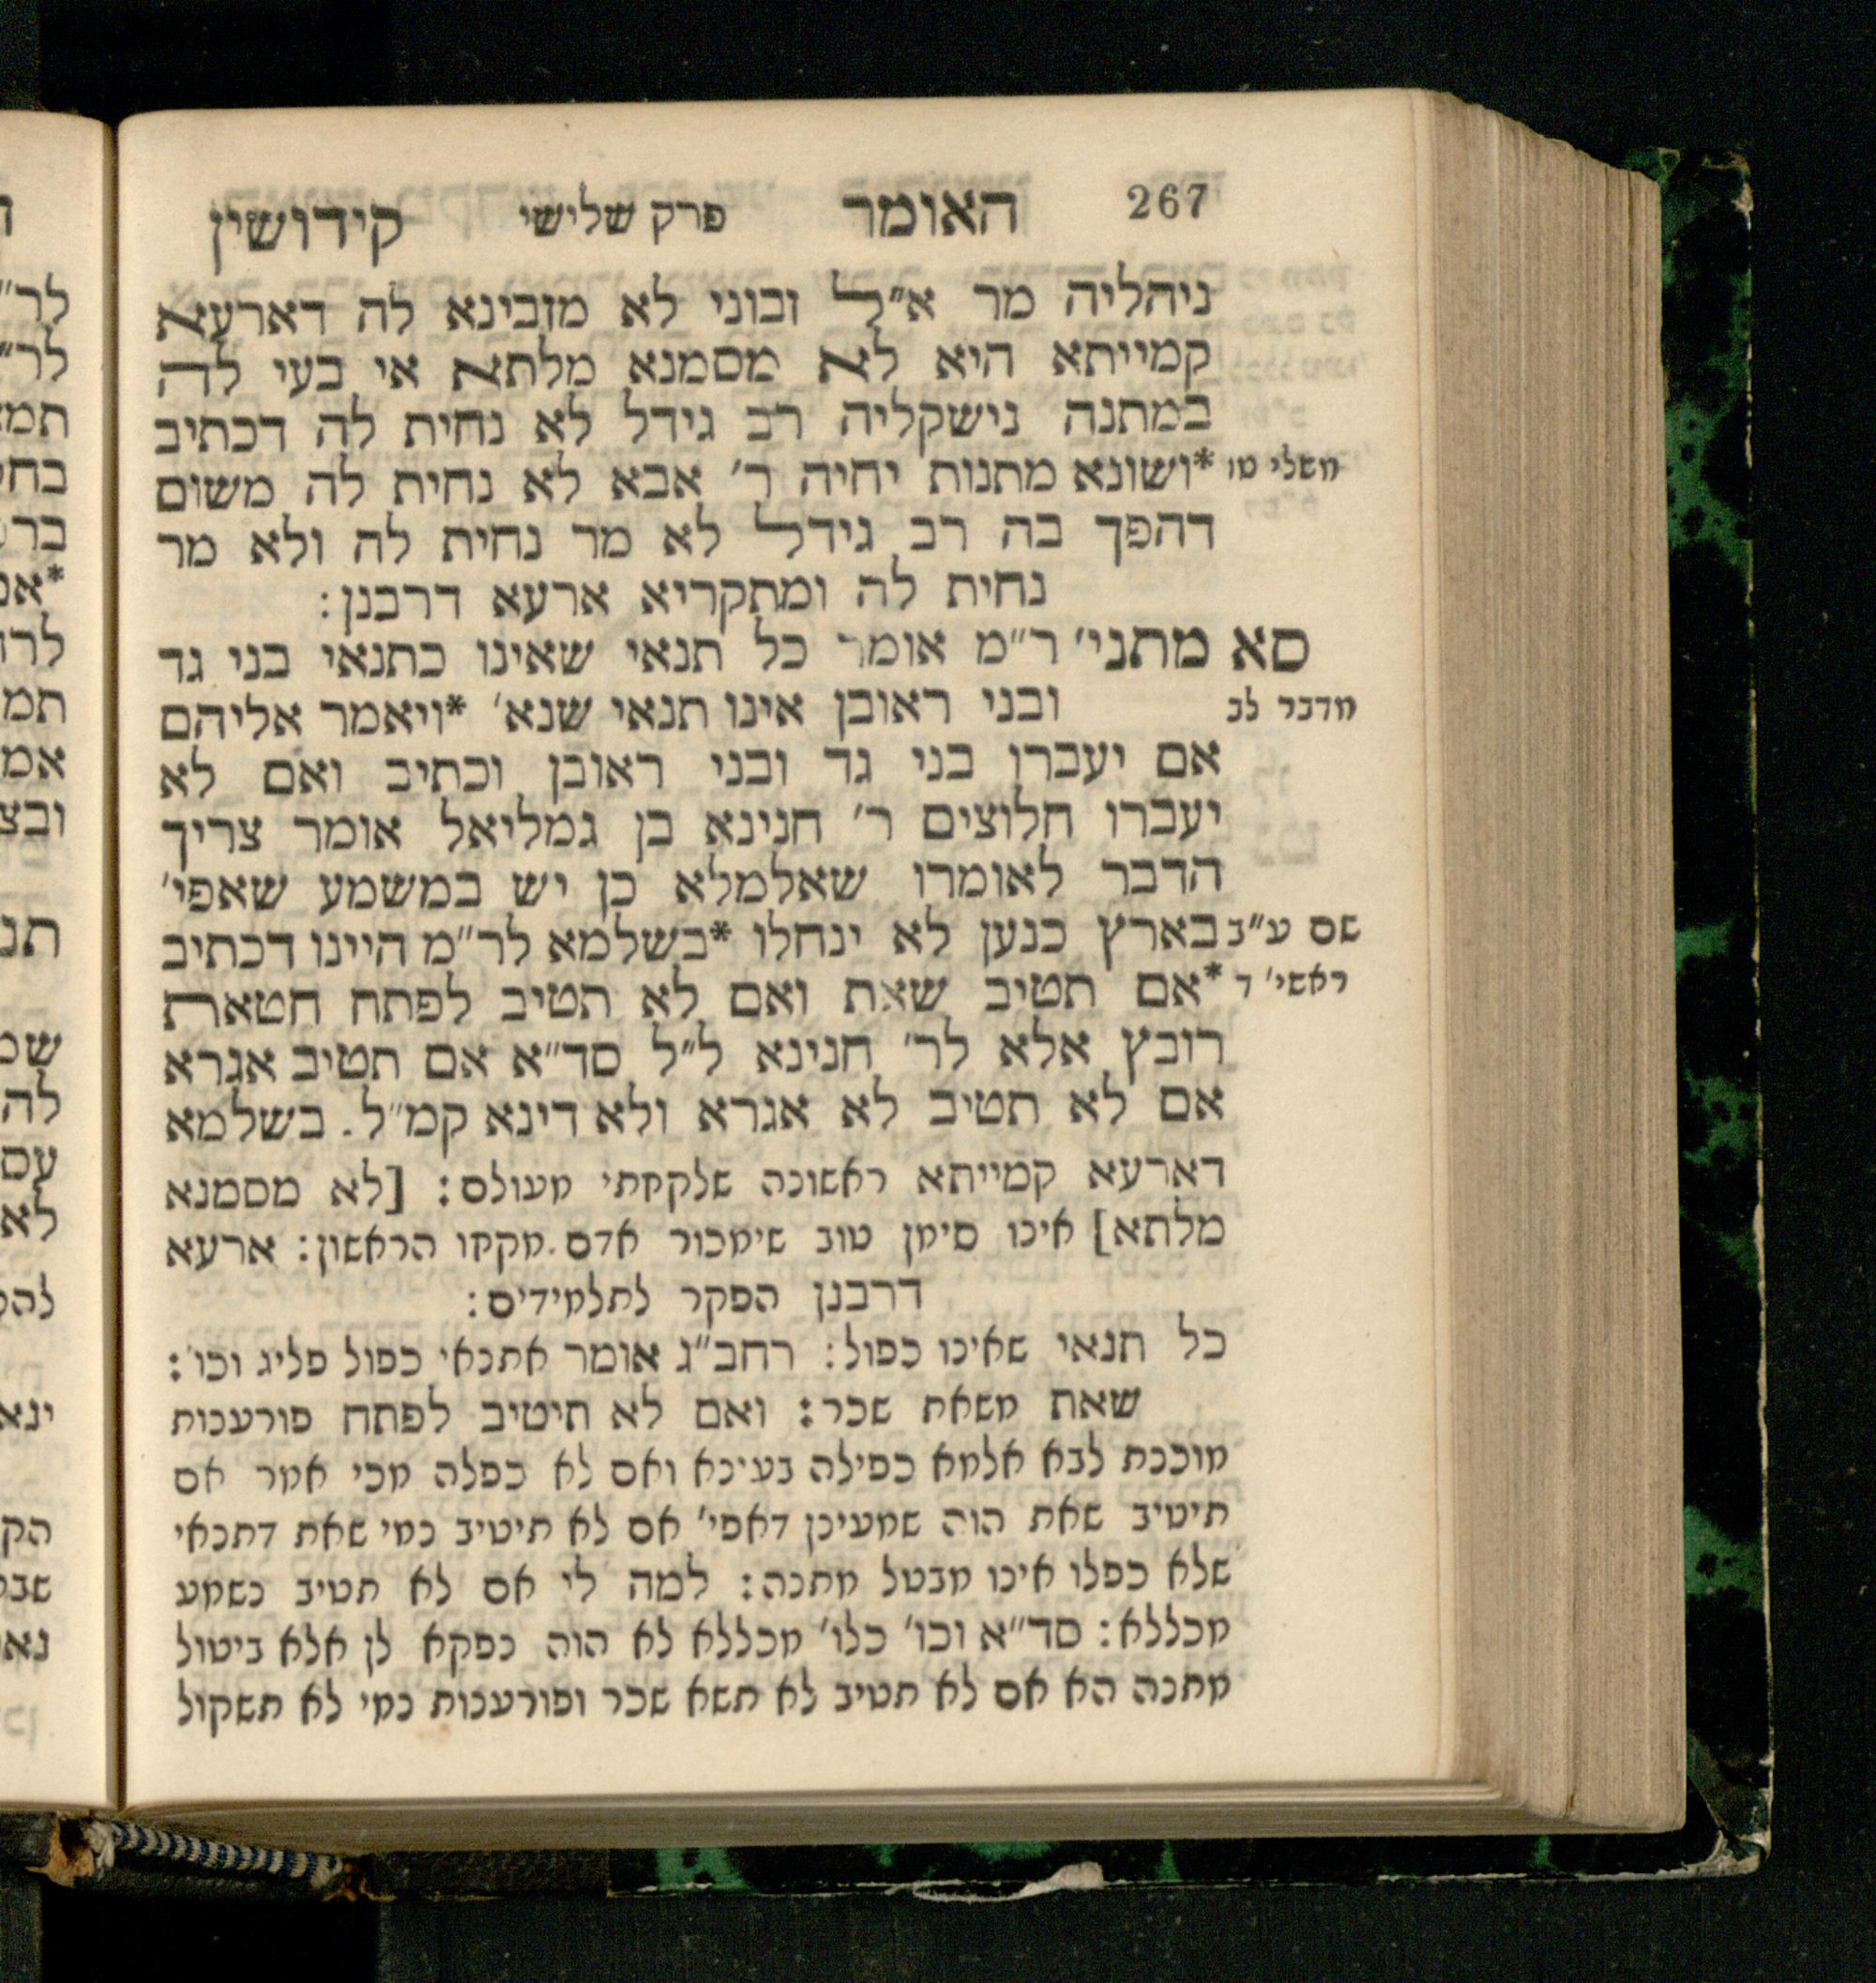 267 האומר פרק שלישי קידושין
ניהליה מר א״ל זבוני לא מזבינא לה דארעא
קמייתא היא לא מסמנא מלתא אי בעי לה
במתנה נישקליה רב גידל לא נחית לה דכתיב
משלי טו *ושונא מתנות יחיה ר׳ אבא לא נחית לה משום
דהפך בה רב גידל לא מר נחית לה ולא מר
נחית לה ומתקריא ארעא דרבנן:
סא מתני׳ ר״מ אומר כל תנאי שאינו כתנאי בני גד
מדבר לב ובני ראובן אינו תנאי שנא׳ *ויאמר אליהם
אם יעברו בני גד ובני ראובן וכתיב ואם לא
יעברו חלוצים ר׳ חנינא בן גמליאל אומר צריך
הדבר לאומרו שאלמלא כן יש במשמע שאפי׳
שם ע״ב בארץ כנען לא ינחלו *בשלמא לר״מ היינו דכתיב
ראשי׳ ד *אם תטיב שאת ואם לא תטיב לפתח חטאת
רובץ אלא לר׳ חנינא ל״ל סד״א אם תטיב אגרא
אם לא תטיב לא אגרא ולא דינא קמ״ל. בשלמא
דארעא קמייתא ראשונה שלקחתי מעולם: [לא מסמנא
מלתא] אינו סימן טוב שימכור אדם מקחו הראשון: ארעא
דרבנן הפקר לתלמידים:
כל תנאי שאינו כפול: רחב״ג אומר אתנאי כפול פליג וכו׳:
שאת משאת שכר: ואם לא תיטיב לפתח פורענות
מוכנת לבא אלמא כפילה בעינא ואם לא כפלה מכי אמר אם
תיטיב שאת הוה שמעינן דאפי׳ אם לא תיטיב נמי שאת דתנאי
שלא כפלו אינו מבטל מתנה: למה לי אם לא תטיב נשמע
מכללא: סד״א וכו׳ כלו׳ מכללא לא הוה נפקא לן אלא ביטול
מתנה הא אם לא תטיב לא תשא שכר ופורענות נמי לא תשקול